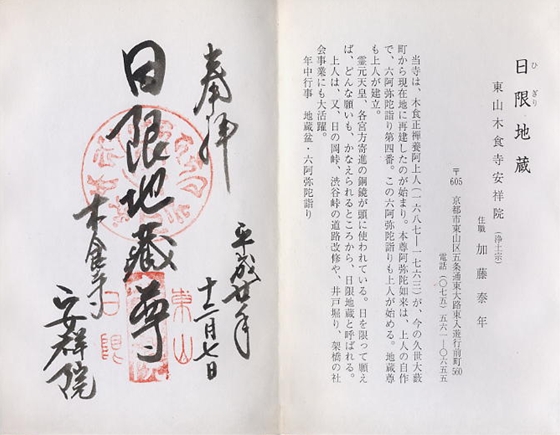 日限地蔵
ひぎり
東山木食寺安祥院
(浄土宗)
住職 加藤泰年
〒605 京都市東山区五条通東大路東入遊行前町560
電話(〇七五)五六一―〇六五五
当寺は、木食正禅養阿上人(一六八七―一七六三)が、今の久世大藪
町から現在地に再建したのが始まり。本尊阿弥陀如来は、上人の自作
で、六阿弥陀詣り第四番。この六阿弥陀詣りも上人が始める。地蔵尊
も上人が建立。
霊元天皇、各宮方寄進の銅鏡が頭に使われている。日を限って願え
ば、どんな願いも、かなえられるところから、日限地蔵と呼ばれる。
上人は、又、日の岡峠、渋谷峠の道路改修や、井戸堀り、架橋の社
会事業にも大活躍。
年中行事 地蔵盆・六阿弥陀詣り
奉拝
平成廿年
十二月七日
日限地蔵尊
木食寺
安祥院
東山
日限